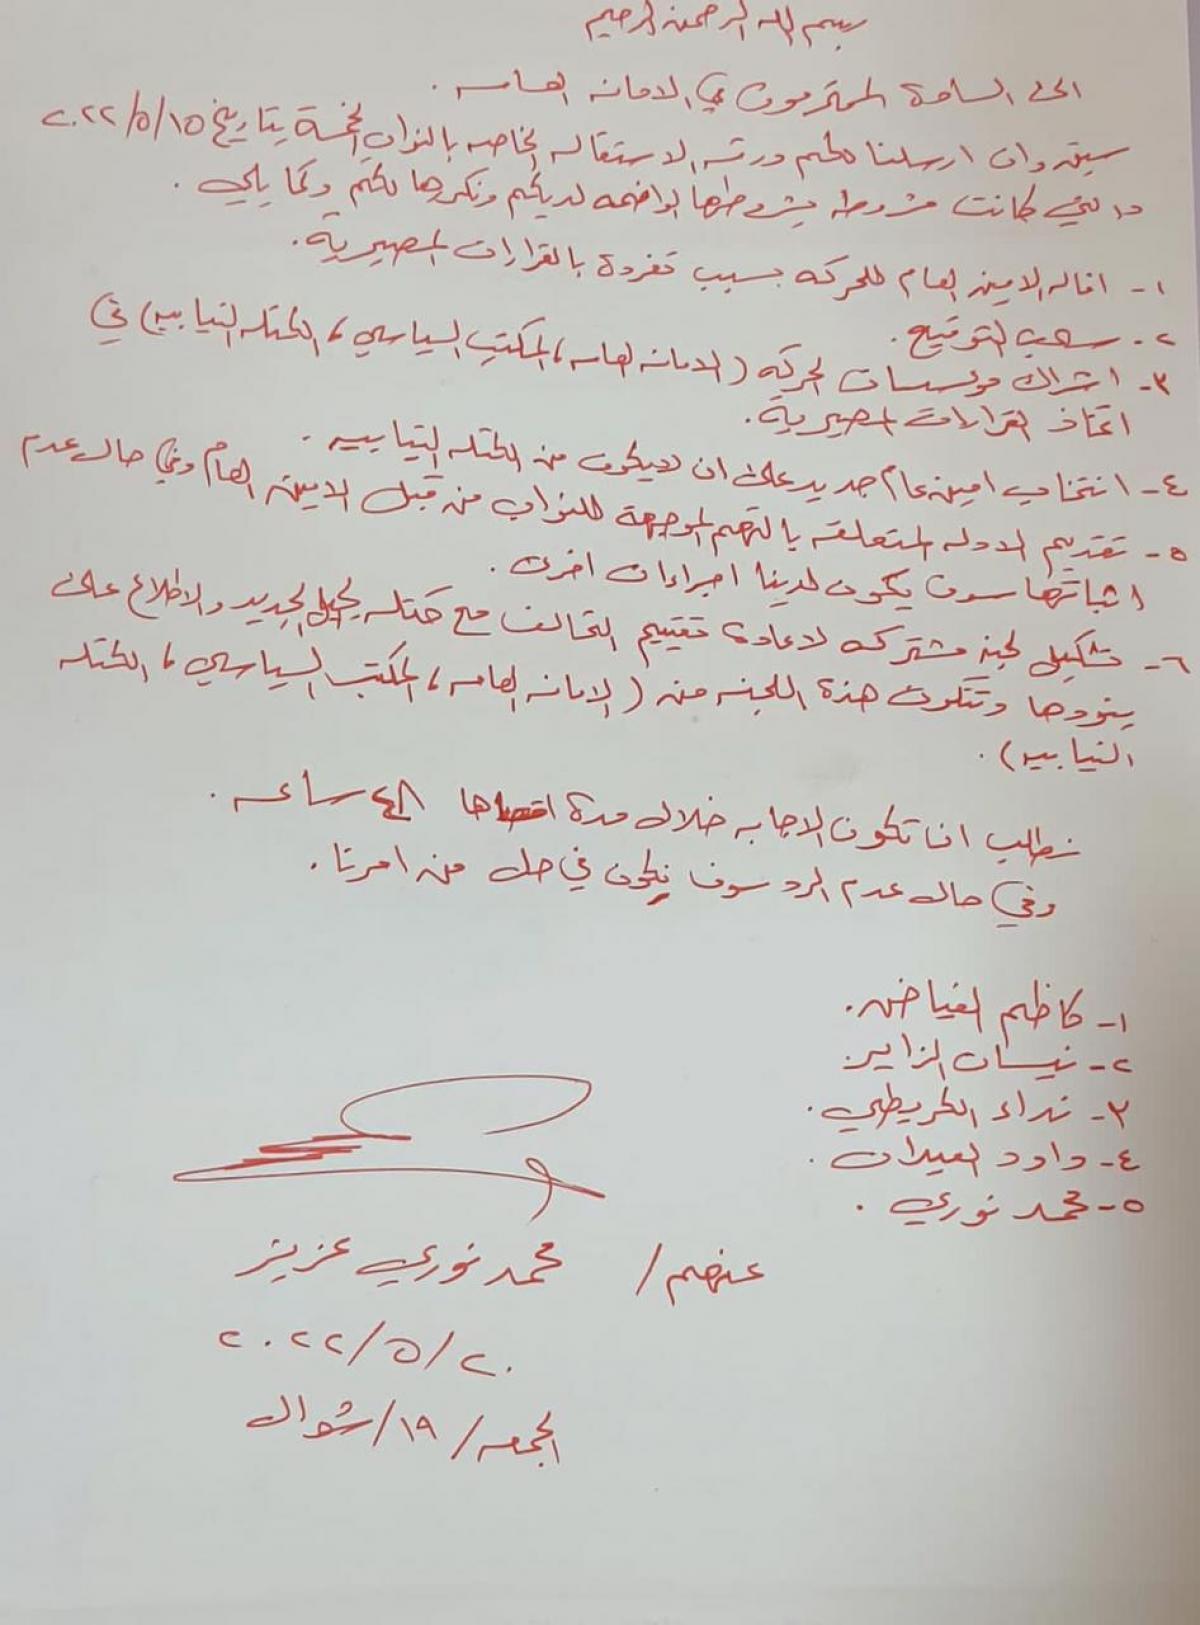 بسم الله الرحمن الرحيم
الى السادة المحترمون في الامانه العامه .
سبق وان ارسلنا لكم ورقة الاستقاله الخاصه بالنواب الخمسة بتاريخ ٢٠٢٢/٥/١٥
والتي كانت مشروطه بشروطها الواضحه لديكم ونكررها لكم وكما يلي .
١- اقاله الامين العام للحركه بسبب تفردة بالقرارات المصيرية .
٢- سحب التوقيع .
٣- اشراك مؤسسات الحركه (الامانه العامه ، المكتب السياسي ، الكتله النيابيه) في
اتخاذ القرارات المصيرية .
٤- انتخاب امين عام جديد على ان لايكون من الكتله النيابيه .
٥- تقديم الادله المتعلقه بالتهم الموجهة للنواب من قبل الامين العام وفي حال عدم
اثباتها سوف يكون لدينا اجراءات اخرى .
٦- تشكيل لجنه مشتركه لاعادة تقييم التحالف مع كتله الجيل الجديد والاطلاع على
بنودها وتتكون هذة اللجنه من (الامانه العامه ، المكتب السياسي ، الكتله
النيابيه) .
نطلب ان تكون الاجابه خلال مدة اقصاها ٤٨ ساعه .
وفي حال عدم الرد سوف نكون في حل من امرنا .
١- كاظم الفياض .
٢- نيسان الزاير
٣- نداء الكريطي .
٤- داود العيدان .
٥- محمد نوري .
عنهم / محمد نوري عزيز
٢٠٢٢/٥/٢٠
الجمعه / ١٩ / شوال